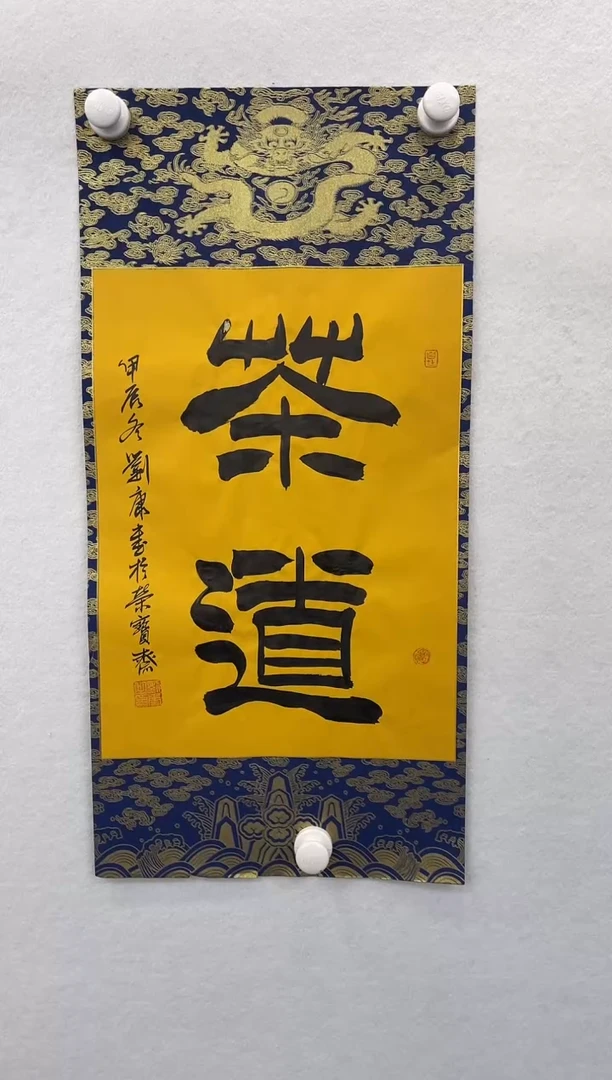 茶道
甲辰冬劉康書於榮寶齋